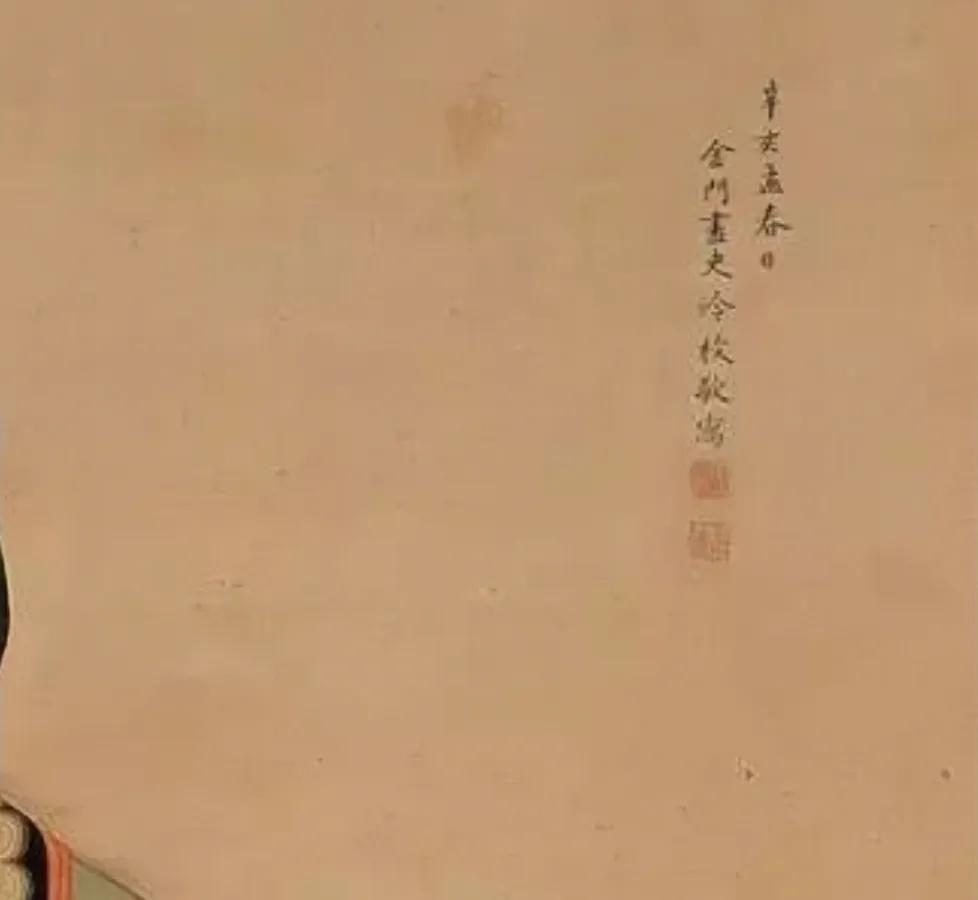 辛亥孟春日
金門畫史冷枚敬寫